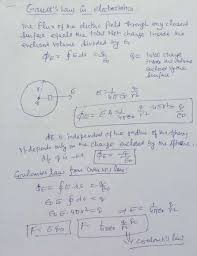 Gauss's Law in electrostatics
The Flux of the electric field through any closed
surface equals the total Net charge inside the
enclosed volume divided by ε₀
ΦE = ∮E ds = q/ε₀
q = total charge
inside the
volume enclosed
by the surface
E = 1/4πε₀ q/r²
ΦE = EA = 1/4πε₀ q/r² 4πr² = q/ε₀
it is independent of the radius of the sphere,
it depends only on the charge enclosed by the sphere
ΦE = q/ε₀
Coulomb's law from Gauss's law:
ΦE = ∮E ds = q/ε₀
ε₀ E ∮ ds = q
ε₀ E 4πr² = q
E = 1/4πε₀ q/r²
F = E q₀
F = 1/4πε₀
coulomb's law